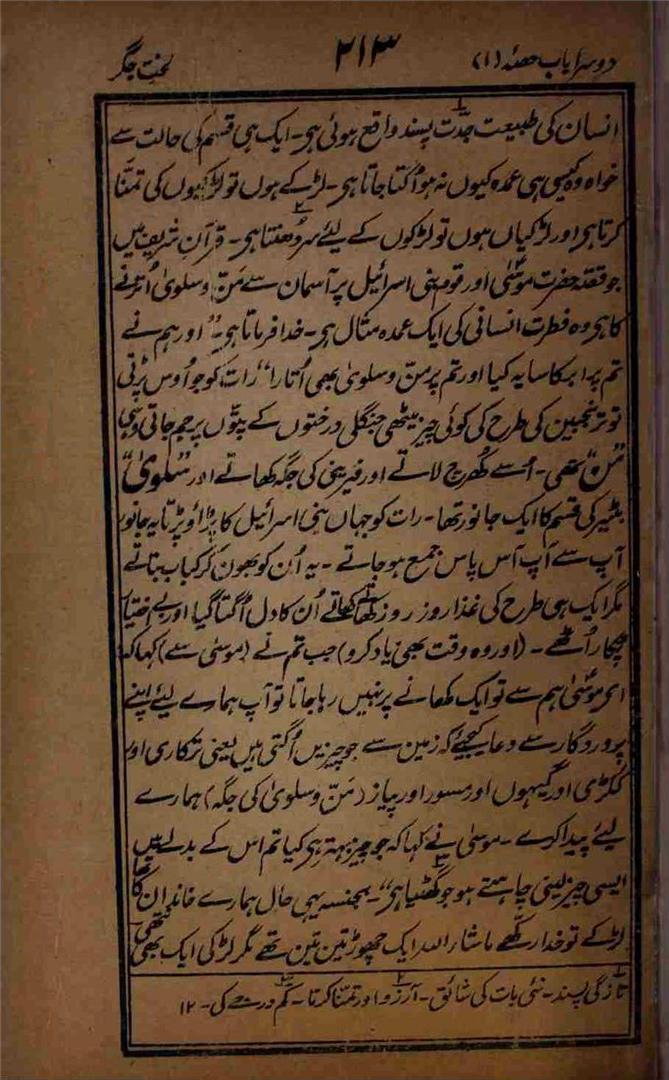 دوسرا باب حصہ (۱) ۲۱۳ لخت جگر
انسان کی طبیعت جدّت پسند واقع ہوئی ہی۔ ایک ہی قسم کی حالت سے
خواہ وہ کیسی ہی عمدہ کیوں نہ ہو اُکتا جاتا ہی۔ لڑکے ہوں تو لڑکیوں کی تمنّا
کرتا ہی اور لڑکیاں ہوں تو لڑکوں کے لیئے سر دُھنتا ہی۔ قرآن شریف میں
جو قصّہ حضرت موسیٰ اور قوم بنی اسرائیل پر آسمان سے مَنّ و سلویٰ اُترنے
کا ہی وہ فطرت انسانی کی ایک عمدہ مثال ہی۔ خدا فرماتا ہی۔ "اور ہم نے
تم پر ابر کا سایہ کیا اور تم پر منّ و سلویٰ بھی اُتارا" رات کو جو اُوس پڑتی
تو ترنجبین کی طرح کی کوئی چیز میٹھی جنگلی درختوں کے پتّوں پر جم جاتی وہی
"مَنّ" تھی۔ اُسے کُھرچ لاتے اور فیرینی کی جگہ کھاتے اور "سَلویٰ"
بٹیر کی قسم کا ایک جانور تھا۔ رات کو جہاں بنی اسرائیل کا پڑاؤ پڑتا یہ جانور
آپ سے آپ آس پاس جمع ہو جاتے۔ یہ اُن کو بھون کر کباب بناتے
مگر ایک ہی طرح کی غذا روز روز کھاتے کھاتے اُن کا دل اُکتا گیا اور بے اختیار
پکار اُٹھے۔ (اور وہ وقت بھی یاد کرو) جب تم نے (موسیٰ سے) کہا کہ
ای موسیٰ ہم سے تو ایک کھانے پر نہیں رہا جاتا تو آپ ہمارے لیئے اپنے
پروردگار سے دعا کیجیئے کہ زمین سے جو چیزیں اُگتی ہیں یعنی ترکاری اور
ککڑی اور گیہوں اور مسور اور پیاز (مَنّ و سلویٰ کی جگہ) ہمارے
لیئے پیدا کرے۔ موسیٰ نے کہا کہ جو چیز بہتر ہی کیا تم اس کے بدلے میں
ایسی چیز لینی چاہتے ہو جو گھٹیا ہی"۔ بجنسہ یہی حال ہمارے خاندان کا تھا
لڑکے تو خدا رکھے ماشاء اللہ ایک چھوڑ تین تین تھے مگر لڑکی ایک بھی نہ تھی
۱ تازگی پسند۔ نئی بات کی شائق۔ ۲ آرزو اور تمنّا کرتا۔ ۳ کم درجے کی۔ ۱۲